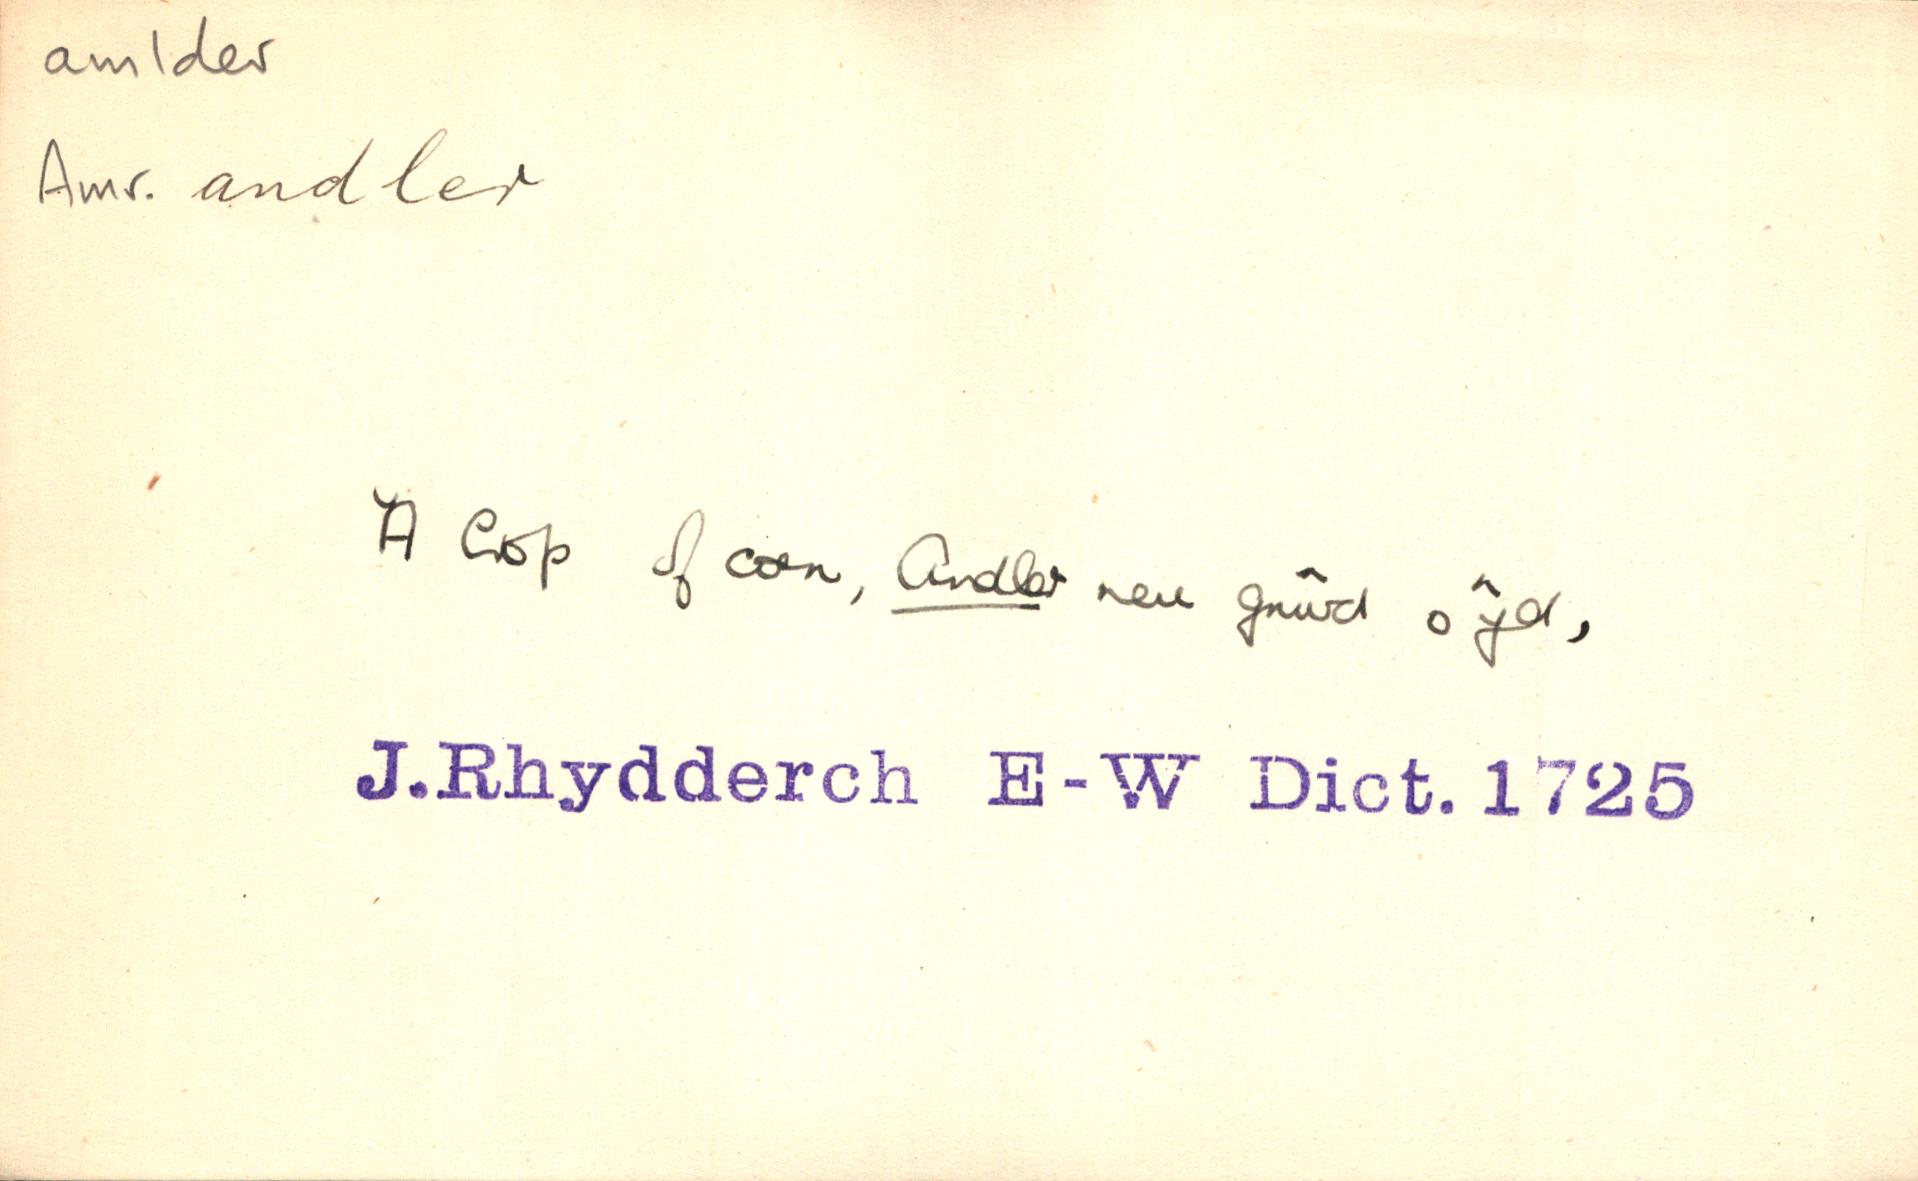 amlder
Amr. andler
A Crop of corn, Andler neu gnŵd o ŷd,
J.Rhydderch E-W Dict. 1725